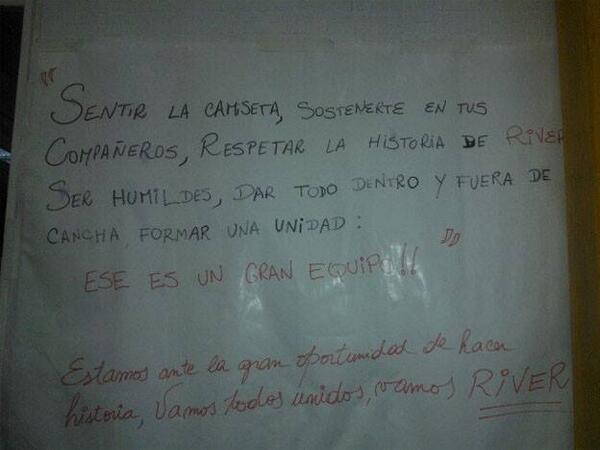 "SENTIR LA CAMISETA, SOSTENERTE EN TUS
COMPAÑEROS, RESPETAR LA HISTORIA DE RIVER
SER HUMILDES, DAR TODO DENTRO Y FUERA DE
CANCHA, FORMAR UNA UNIDAD:
ESE ES UN GRAN EQUIPO!!"
Estamos ante la gran oportunidad de hacer
historia, Vamos todos unidos, vamos RIVER